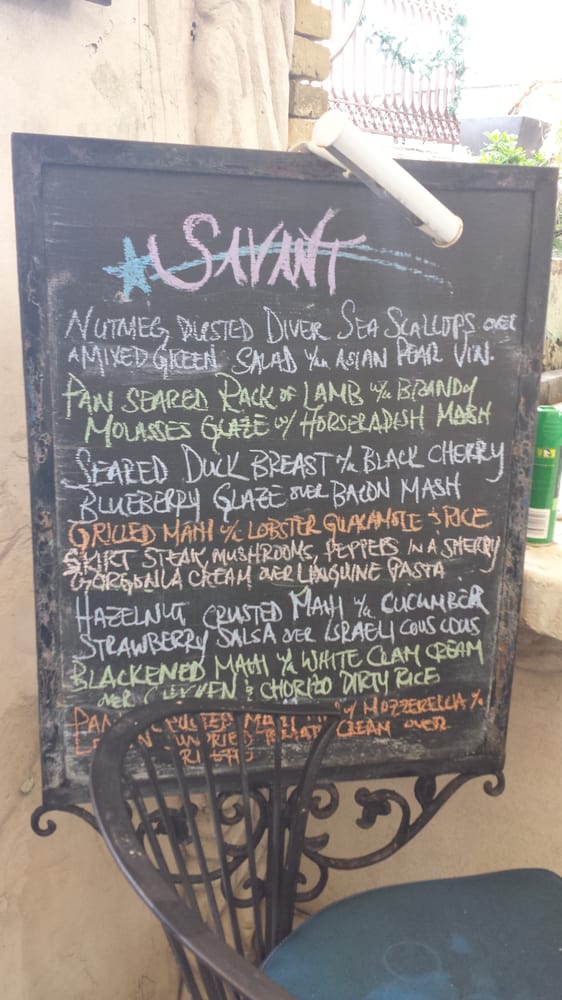 SAVANT
NUTMEG DUSTED DIVER SEA SCALLOPS OVER
A MIXED GREEN SALAD W/ AN ASIAN PEAR VIN.
PAN SEARED RACK OF LAMB W/A BRANDY
MOLASSES GLAZE W/ HORSERADISH MASH
SEARED DUCK BREAST W/A BLACK CHERRY
BLUEBERRY GLAZE OVER BACON MASH
GRILLED MAHI W/A LOBSTER GUAKAMOLE & RICE
SKIRT STEAK, MUSHROOMS, PEPPERS IN A SHERRY
GORGONLA CREAM OVER LINGUINE PASTA
HAZELNUT CRUSTED MAHI W/A CUCUMBER
STRAWBERRY SALSA OVER ISRAELI COUS COUS
BLACKENED MAHI W/A WHITE CLAM CREAM
OVER CHICKEN & CHORIZO DIRTY RICE
MAHI W/ MOZZERELLA W/A
CREAM OVER